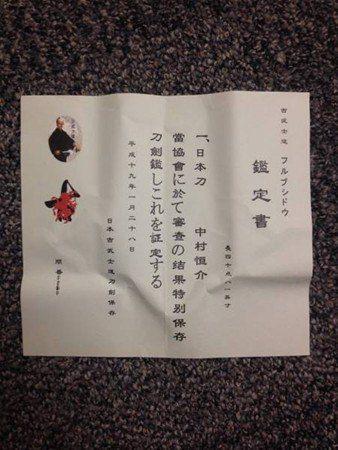 古武士道 フルブシドウ
鑑定書
長四十点八一英寸
一、日本刀 中村恒介
當協會に於て審查の结果特别保存
刀劍鑑しこれを证定する
平成十九年一月二十八日
日本古武士道刀劍保存
順番